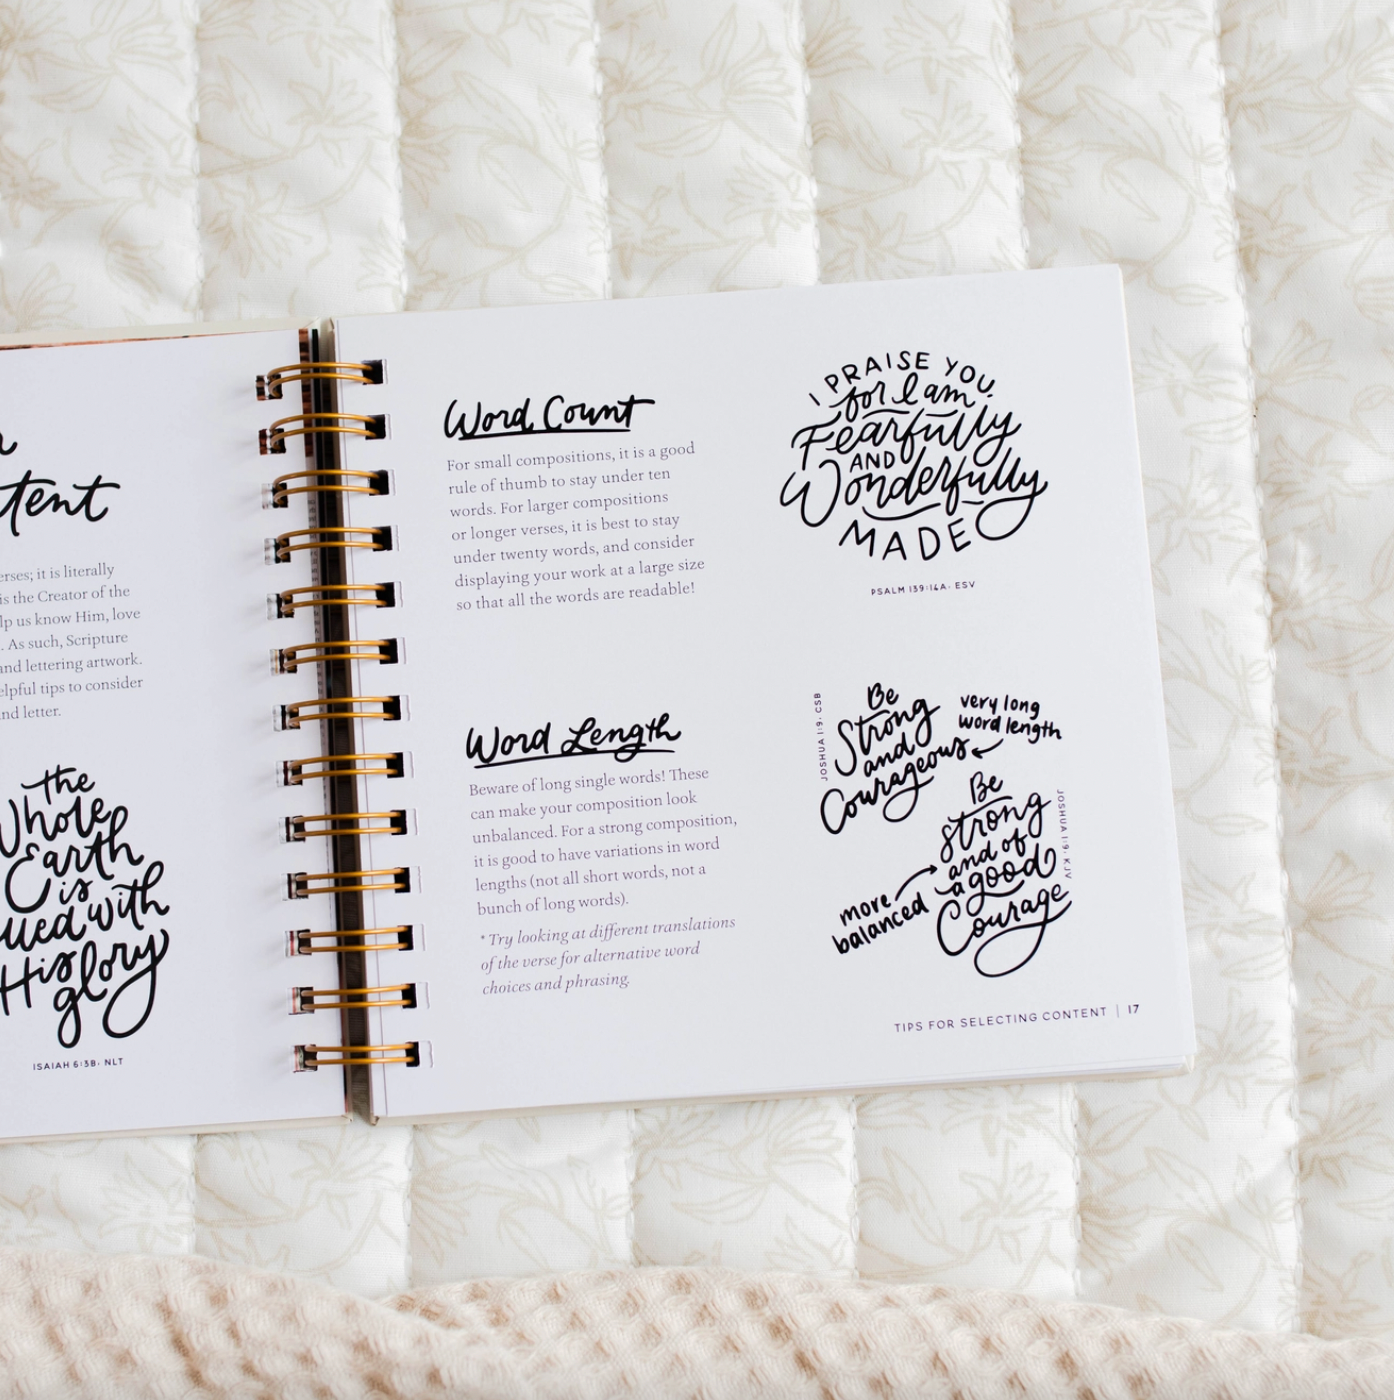 tent
erses; it is literally
is the Creator of the
lp us know Him, love
. As such, Scripture
and lettering artwork.
elpful tips to consider
nd letter.
the
Whole
Earth
is
with
His
glory
ISAIAH 6:3B· NLT
Word Count
For small compositions, it is a good
rule of thumb to stay under ten
words. For larger compositions
or longer verses, it is best to stay
under twenty words, and consider
displaying your work at a large size
so that all the words are readable!
I PRAISE YOU
for I am
Fearfully
AND
Wonderfully
MADE
PSALM 139:14A· ESV
Word Length
Beware of long single words! These
can make your composition look
unbalanced. For a strong composition,
it is good to have variations in word
lengths (not all short words, not a
bunch of long words).
* Try looking at different translations
of the verse for alternative word
choices and phrasing.
JOSHUA 1:9, CSB
Be
Strong
and
Courageous
very long
word length
Be
strong
and of
a good
Courage
JOSHUA 1:9, KJV
more
balanced
TIPS FOR SELECTING CONTENT | 17